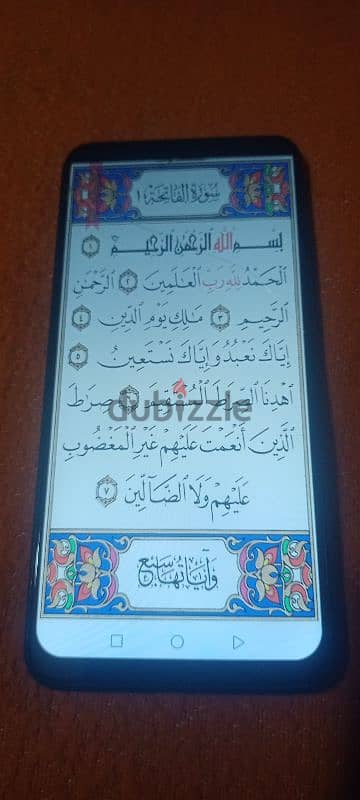 سُورَةُ الفَاتِحَة ١
بِسْمِ اللَّهِ الرَّحْمَٰنِ الرَّحِيمِ ١
الْحَمْدُ لِلَّهِ رَبِّ الْعَالَمِينَ ٢ الرَّحْمَٰنِ
الرَّحِيمِ ٣ مَالِكِ يَوْمِ الدِّينِ ٤
إِيَّاكَ نَعْبُدُ وَإِيَّاكَ نَسْتَعِينُ ٥
اهْدِنَا الصِّرَاطَ الْمُسْتَقِيمَ صِرَاطَ
dubizzle
الَّذِينَ أَنْعَمْتَ عَلَيْهِمْ غَيْرِ الْمَغْضُوبِ
عَلَيْهِمْ وَلَا الضَّالِّينَ ٧
وَآيَاتُهَا سَبْع